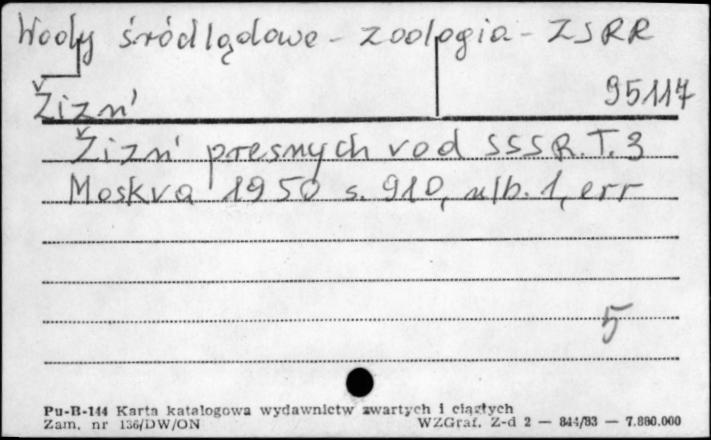 Wody śródlądowe - zoologia - ZSRR
Žizn' 95117
Žizn' presnych vod SSSR. T. 3
Moskva 1950 s. 910, nlb. 1, err
5
Pu-B-144 Karta katalogowa wydawnictw zwartych i ciągłych
Zam. nr 136/DW/ON WZGraf. Z-d 2 — 844/83 — 7.880.000